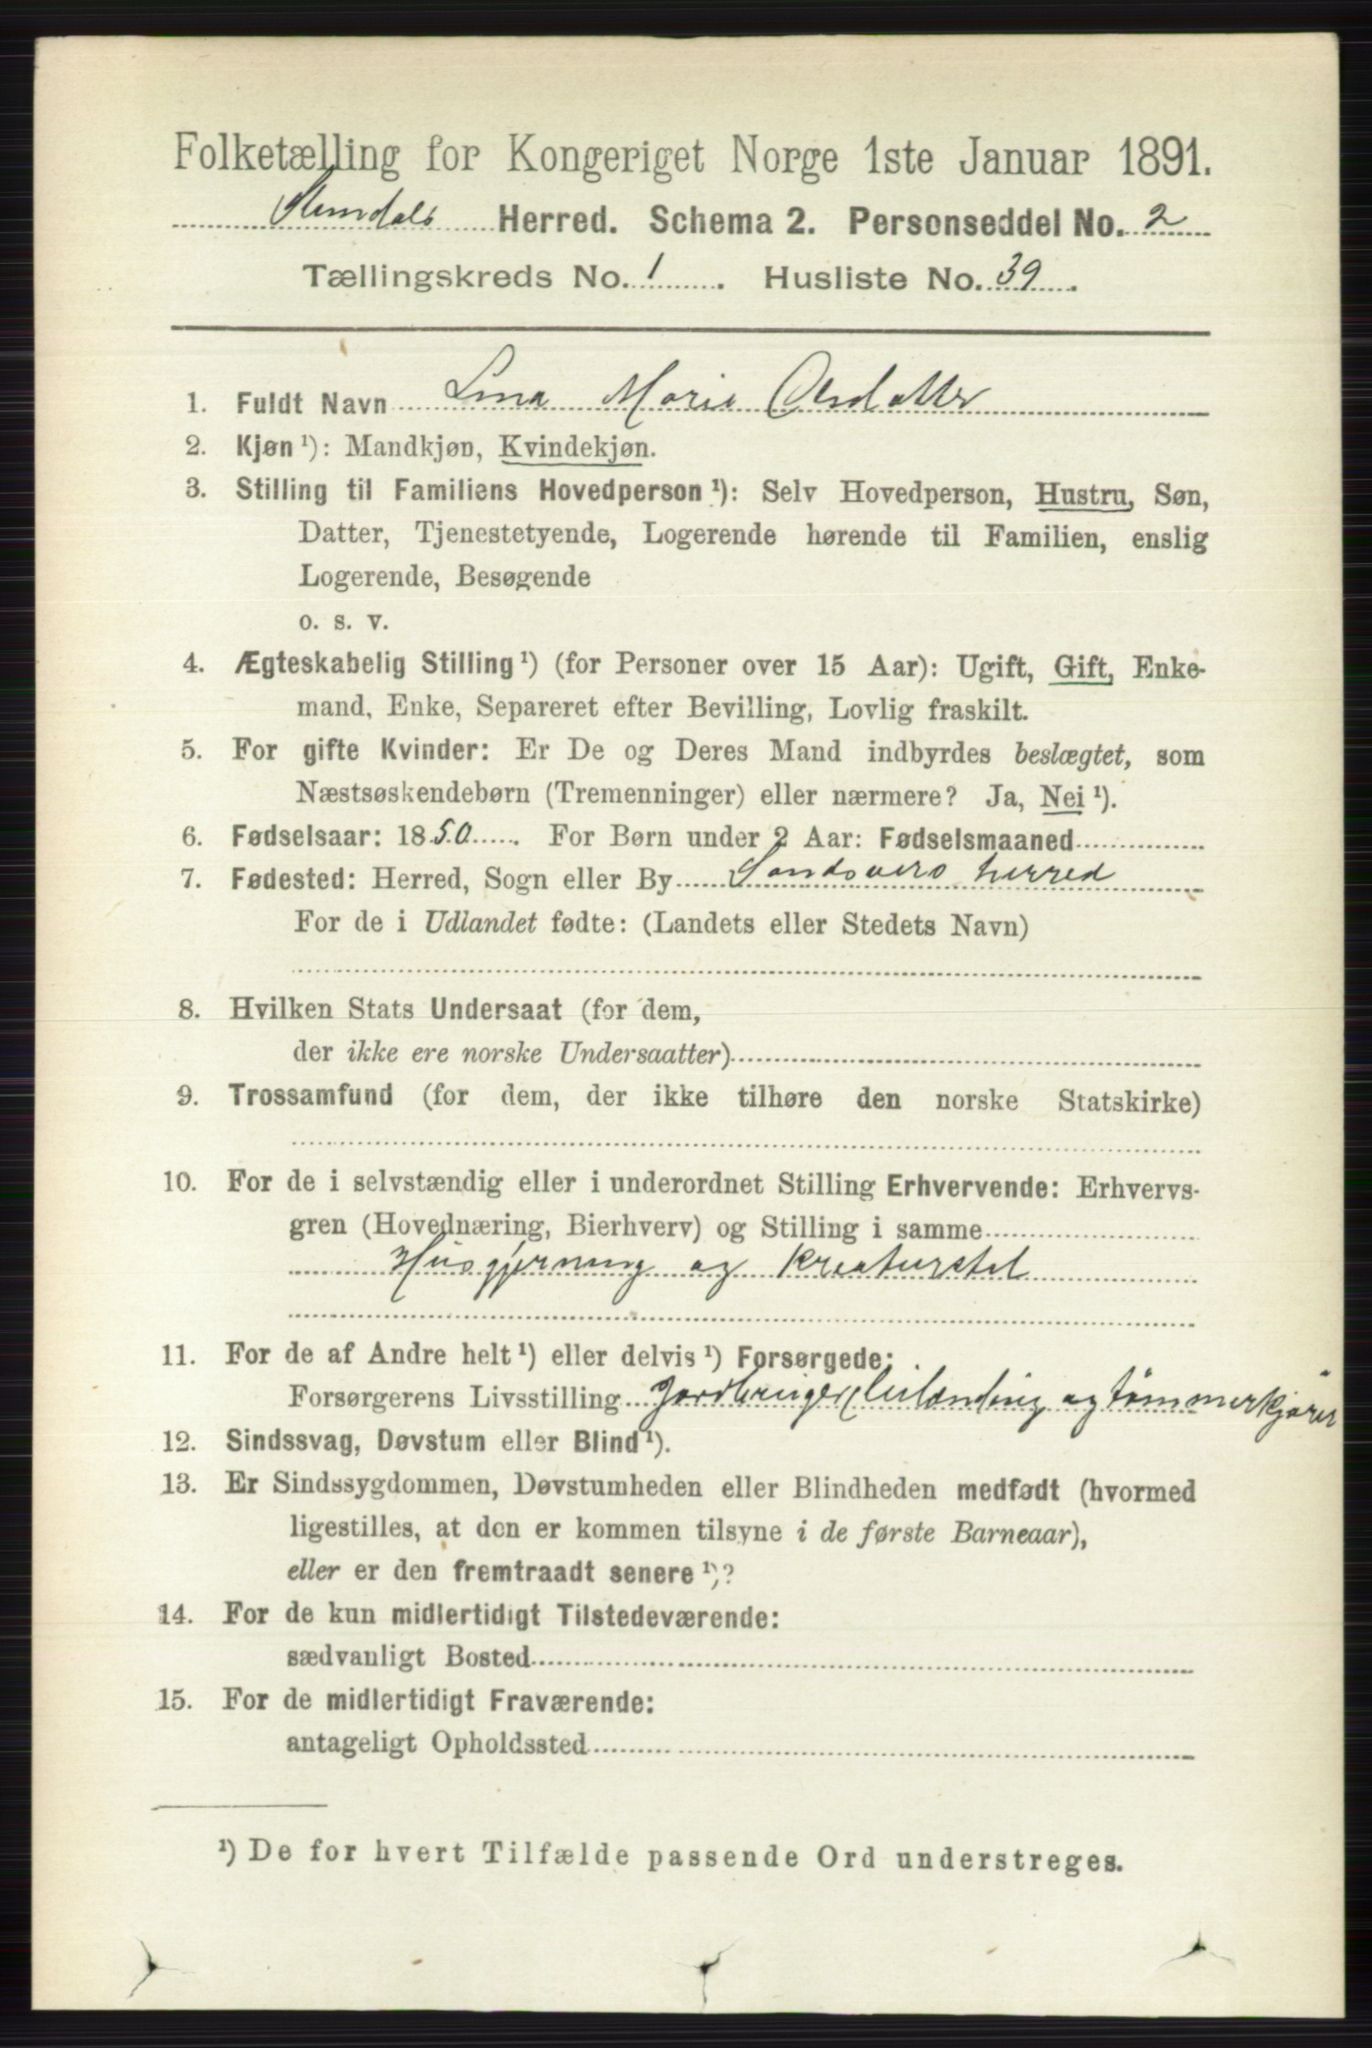 Folketælling for Kongeriget Norge 1ste Januar 1891.
Herred. Schema 2. Personseddel No. 2
Tællingskreds No. 1. Husliste No. 39.
1. Fuldt Navn Lina Marie Olsdatter
2. Kjøn ¹): Mandkjøn, Kvindekjøn.
3. Stilling til Familiens Hovedperson ¹): Selv Hovedperson, Hustru, Søn,
Datter, Tjenestetyende, Logerende hørende til Familien, enslig
Logerende, Besøgende
o. s. v.
4. Ægteskabelig Stilling ¹) (for Personer over 15 Aar): Ugift, Gift, Enke-
mand, Enke, Separeret efter Bevilling, Lovlig fraskilt.
5. For gifte Kvinder: Er De og Deres Mand indbyrdes beslægtet, som
Næstsøskendebørn (Tremenninger) eller nærmere? Ja, Nei ¹).
6. Fødselsaar: 1850. For Børn under 2 Aar: Fødselsmaaned
7. Fødested: Herred, Sogn eller By Sandsvers herred
For de i Udlandet fødte: (Landets eller Stedets Navn)
8. Hvilken Stats Undersaat (for dem,
der ikke ere norske Undersaatter)
9. Trossamfund (for dem, der ikke tilhøre den norske Statskirke)
10. For de i selvstændig eller i underordnet Stilling Erhvervende: Erhvervs-
gren (Hovednæring, Bierhverv) og Stilling i samme
Husgjerning og Kreaturstel
11. For de af Andre helt ¹) eller delvis ¹) Forsørgede:
Forsørgerens Livsstilling Jordbruger Leilænding og tømmerkjører
12. Sindssvag, Døvstum eller Blind ¹).
13. Er Sindssygdommen, Døvstumheden eller Blindheden medfødt (hvormed
ligestilles, at den er kommen tilsyne i de første Barneaar),
eller er den fremtraadt senere ¹)?
14. For de kun midlertidigt Tilstedeværende:
sædvanligt Bosted
15. For de midlertidigt Fraværende:
antageligt Opholdssted
¹) De for hvert Tilfælde passende Ord understreges.